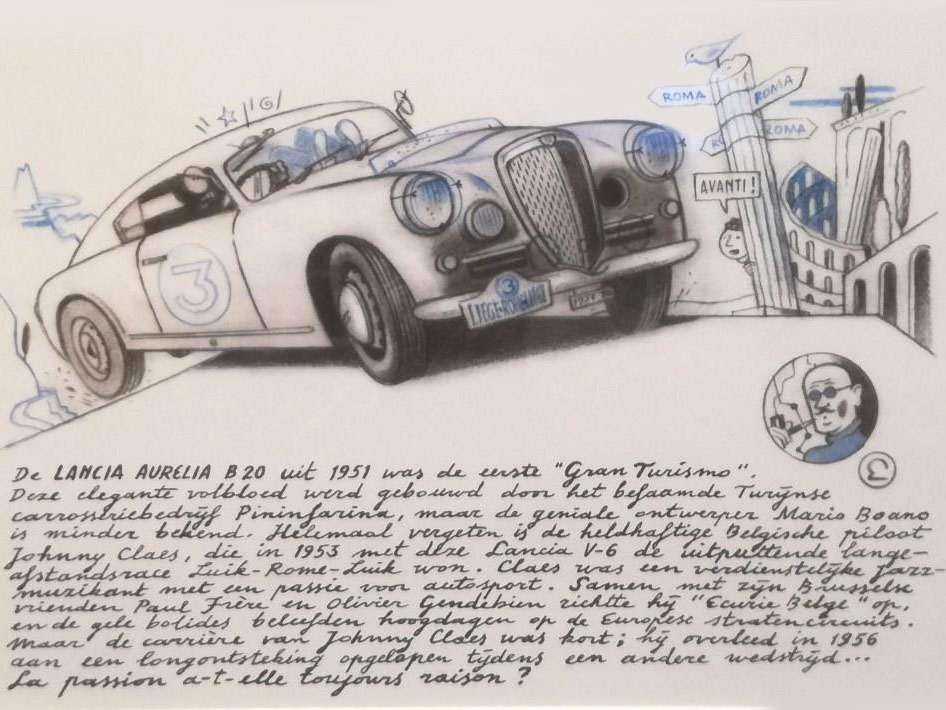 ROMA
ROMA
ROMA
AVANTI!
3
3
LIÈGE-ROME-LIÈGE
De LANCIA AURELIA B20 uit 1951 was de eerste "Gran Turismo".
Deze elegante volbloed werd gebouwd door het befaamde Turijnse
carrosseriebedrijf Pininfarina, maar de geniale ontwerper Mario Boano
is minder bekend. Helemaal vergeten is de heldhaftige Belgische piloot
Johnny Claes, die in 1953 met deze Lancia V-6 de uitputtende lange-
afstandsrace Luik-Rome-Luik won. Claes was een verdienstelijke jazz-
muzikant met een passie voor autosport. Samen met zijn Brusselse
vrienden Paul Frère en Olivier Gendebien richtte hij "Ecurie Belge" op,
en de gele bolides beleefden hoogdagen op de Europese stratencircuits.
Maar de carrière van Johnny Claes was kort; hij overleed in 1956
aan een longontsteking opgelopen tijdens een andere wedstrijd...
La passion a-t-elle toujours raison?